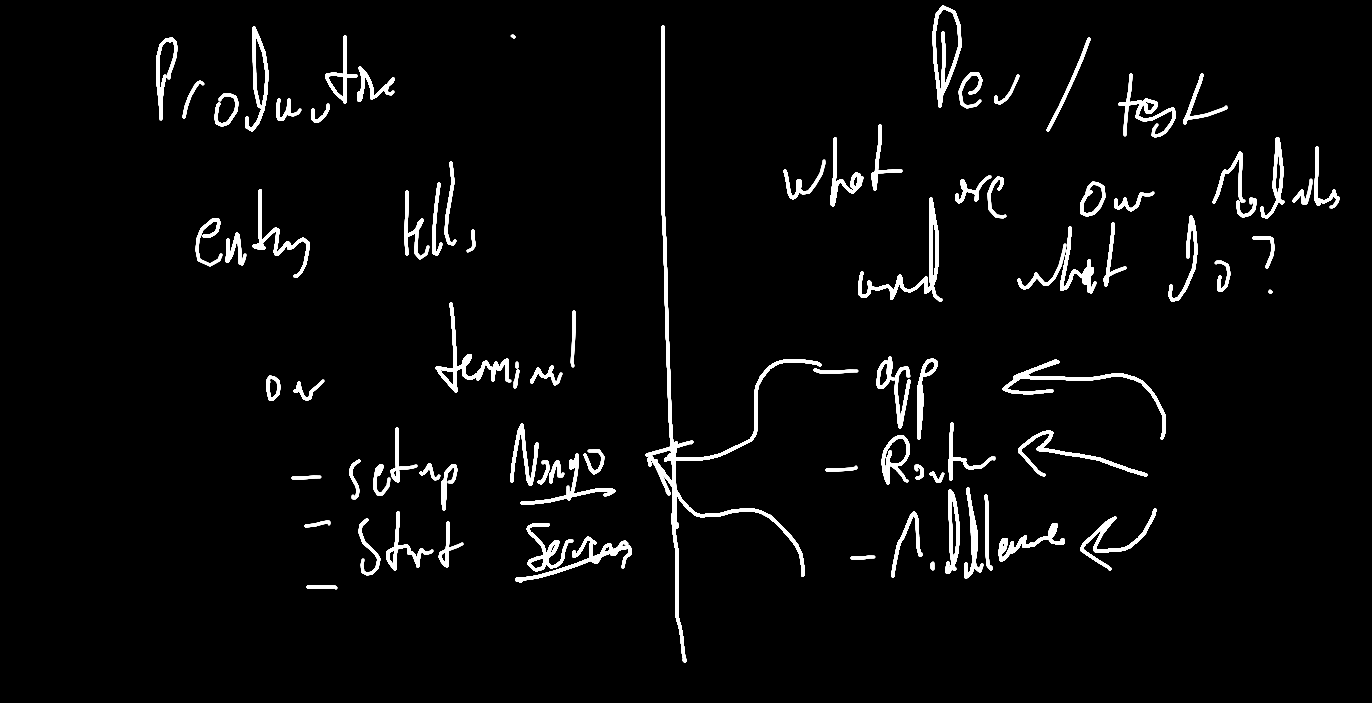 Production
entry tells
our terminal
- setup Mongo
- Start Services
-
Dev / test
what are our Modules
and what do?
- app
- Router
- Middleware